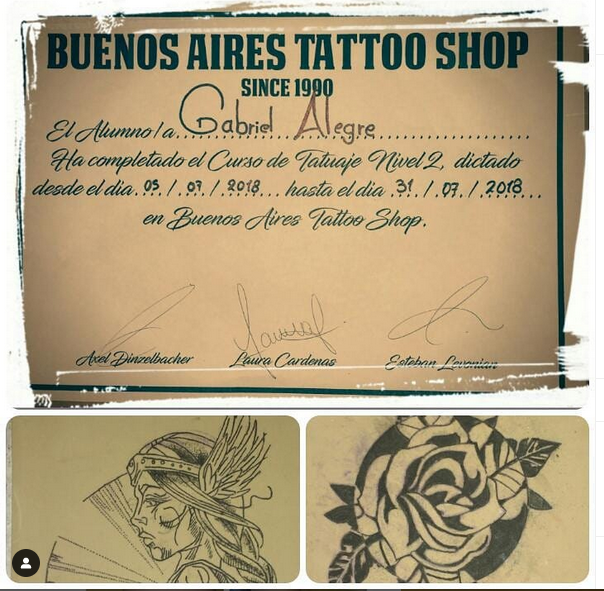 BUENOS AIRES TATTOO SHOP
SINCE 1990
El Alumno/a Gabriel Alegre
Ha completado el Curso de Tatuaje Nivel 2, dictado
desde el dia 05/07/2018 hasta el dia 31/07/2018
en Buenos Aires Tattoo Shop.
Axel Dinzelbacher Laura Cardenas Esteban Levonian